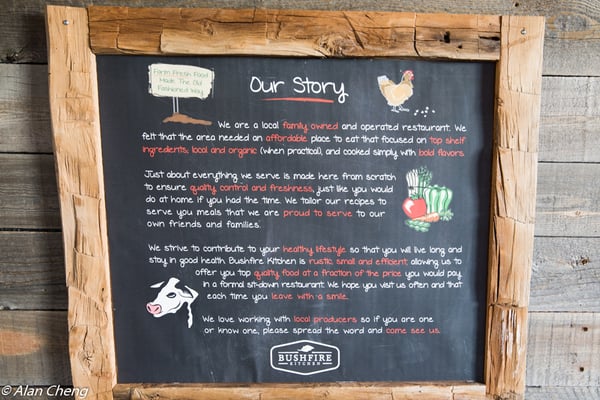 Farm Fresh Food
Made The Old
Fashioned Way
Our Story
We are a local family owned and operated restaurant. We
felt that the area needed an affordable place to eat that focused on top shelf
ingredients, local and organic (when practical), and cooked simply with bold flavors.
Just about everything we serve is made here from scratch
to ensure quality, control and freshness, just like you would
do at home if you had the time. We tailor our recipes to
serve you meals that we are proud to serve to our
own friends and families.
We strive to contribute to your healthy lifestyle so that you will live long and
stay in good health. Bushfire Kitchen is rustic, small and efficient; allowing us to
offer you top quality food at a fraction of the price you would pay
in a formal sit-down restaurant. We hope you visit us often and that
each time you leave with a smile.
We love working with local producers so if you are one
or know one, please spread the word and come see us.
BUSHFIRE
KITCHEN
© Alan Cheng